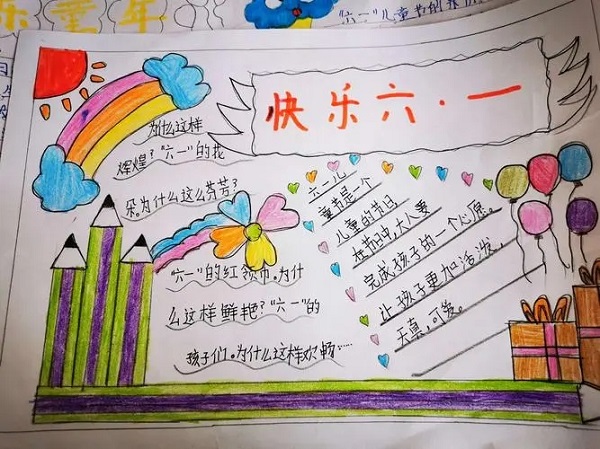 乐童年
"六一"儿童节的
快乐六·一
为什么这样
辉煌?"六一"的花
朵。为什么这么芬芳?
"六一"的红领巾。为什
么这样鲜艳?"六一"的
孩子们。为什么这样欢畅……
六一儿
童节是一个
儿童的节日
在节日中,大人要
完成孩子的一个心愿。
让孩子更加活泼、
天真,可爱。